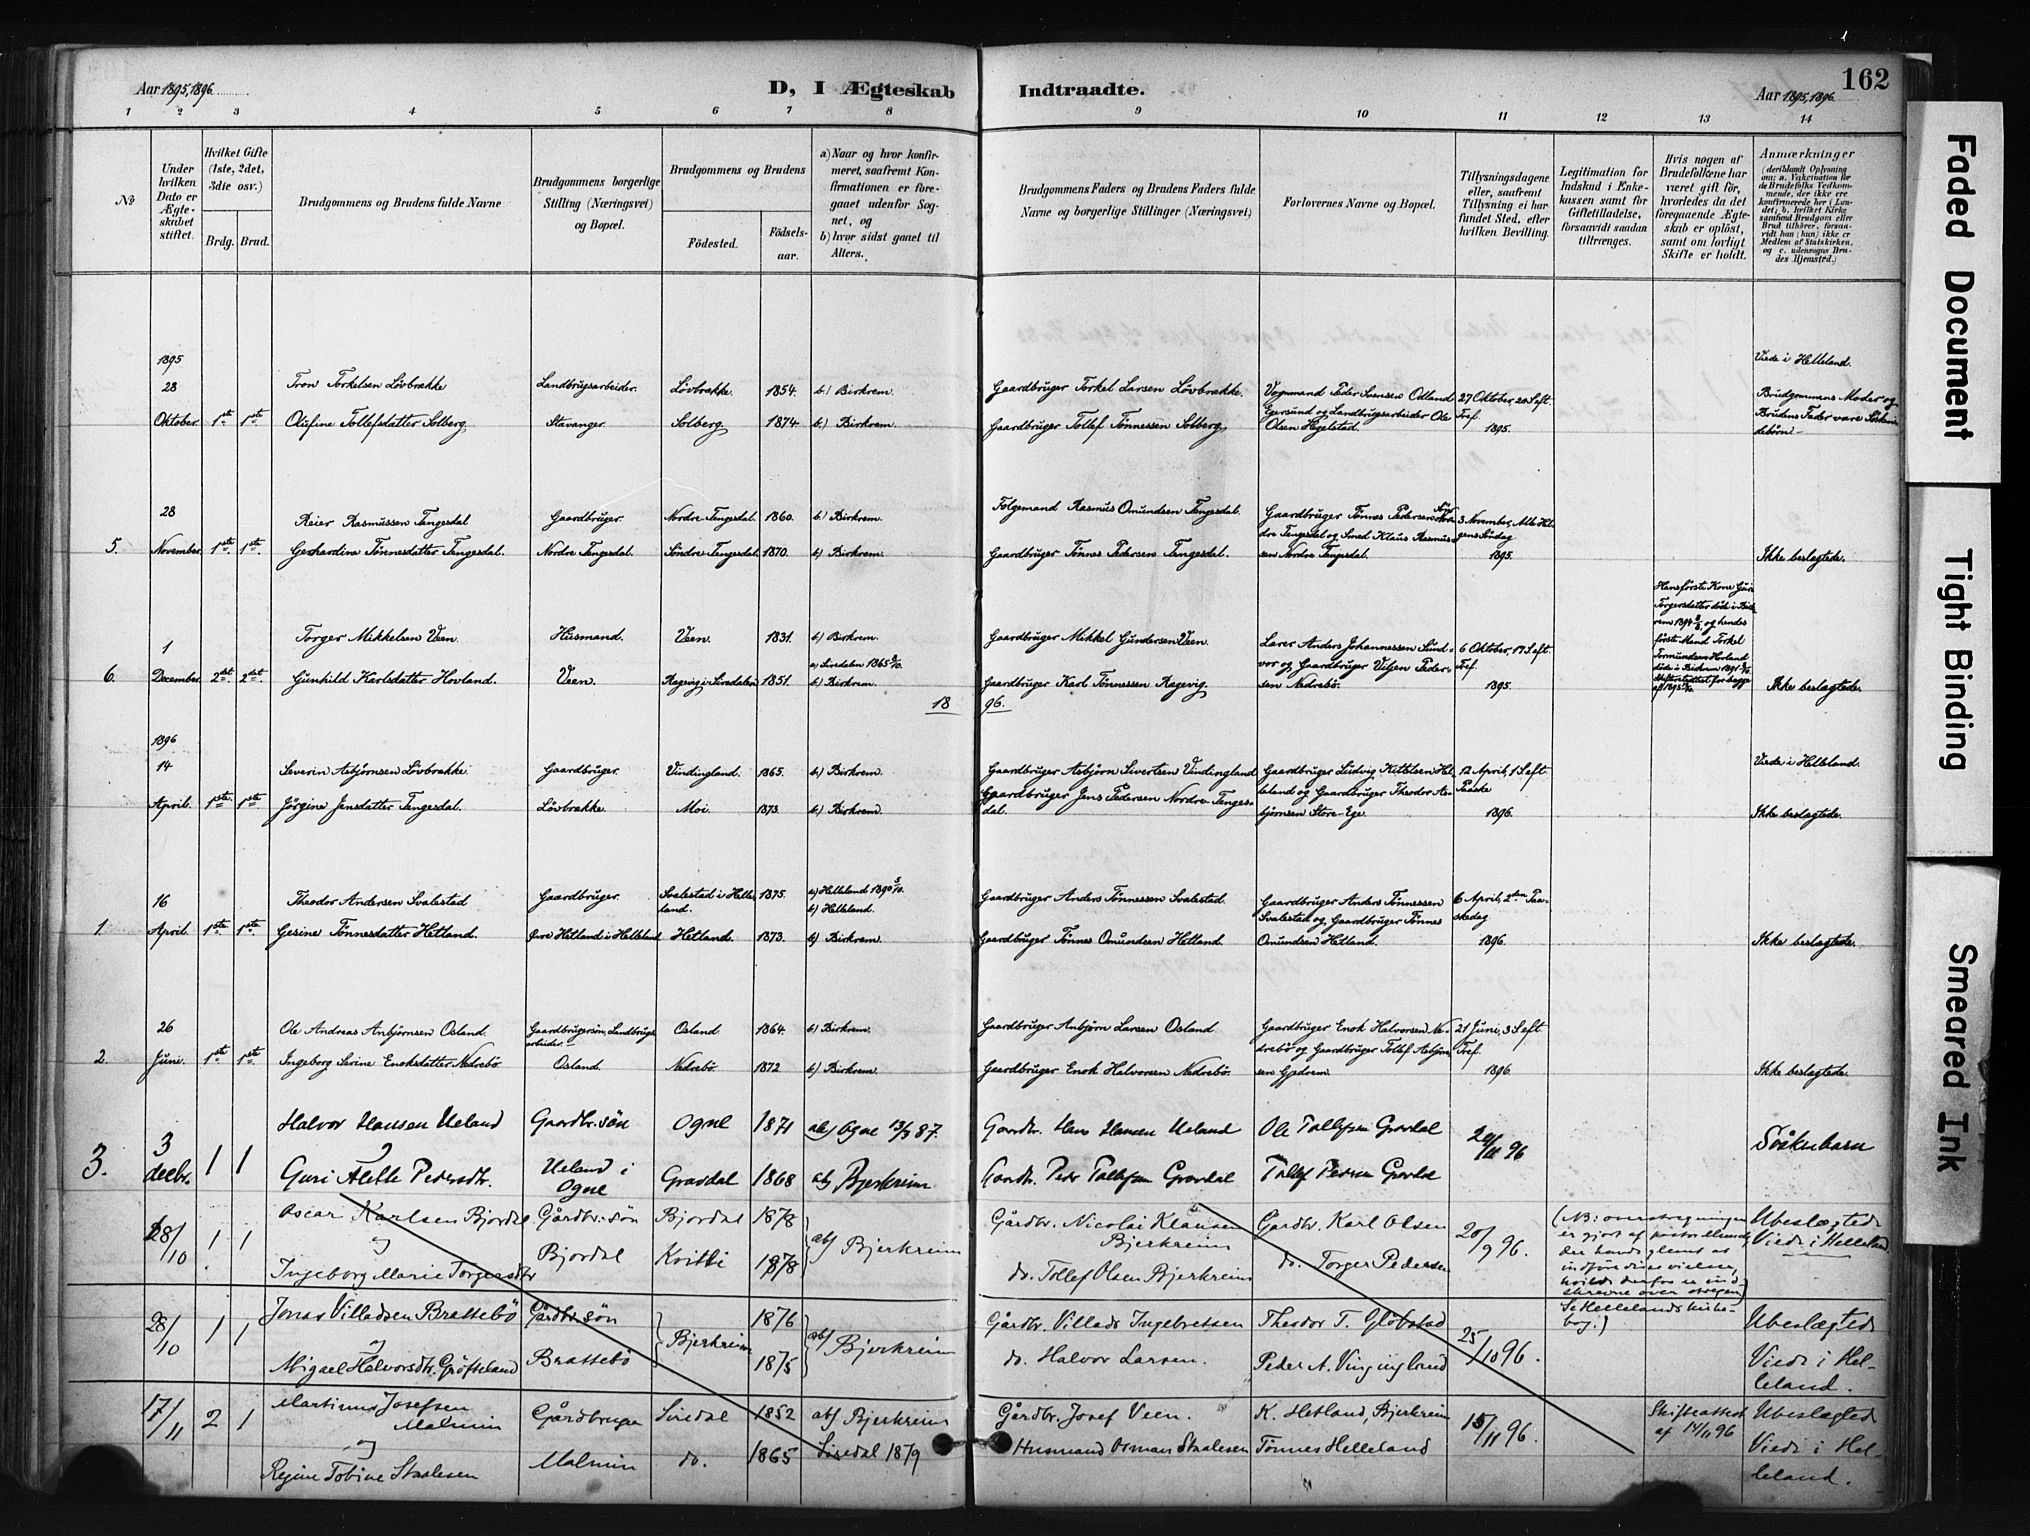 Aar 1895, 1896.
D, I Ægteskab Indtraadte.
162
Aar 1895, 1896.
1 2 3 4 5 6 7 8 9 10 11 12 13 14
No
Under hvilken Dato er Ægteskabet stiftet.
Hvilket Gifte (1ste, 2det, 3die osv.)
Brdg. Brud.
Brudgommens og Brudens fulde Navne
Brudgommens borgerlige Stilling (Næringsvei) og Bopæl.
Brudgommens og Brudens
Födested.
Födselsaar.
a) Naar og hvor konfirmeret, saafremt Konfirmationen er foregaaet udenfor Sognet, og
b) hvor sidst gaaet til Alters.
Brudgommens Faders og Brudens Faders fulde Navne og borgerlige Stillinger (Næringsvei)
Forlovernes Navne og Bopæl.
Tillysningsdagene eller, saafremt Tillysning ei har fundet Sted, efter hvilken Bevilling.
Legitimation for Indskud i Enkekassen samt for Giftetilladelse, forsaavidt saadan tiltrænges.
Hvis nogen af Brudefolkene har været gift för, hvorledes da det foregaaende Ægteskab er oplöst, samt om lovligt Skifte er holdt.
Anmærkninger (deriblandt Oplysning om: a. Vakcination for de Brudefolks Vedkommende, der ikke ere konfirmerede her i Landet; b. hvilket Kirkesamfund Brudgom eller Brud tilhörer, forsaavidt han (hun) ikke er Medlem af Statskirken, og c. udensogns Brudes Hjemsted.)
1895
28 Tron Torkelsen Lövbrække Landbrugsarbeider. Lövbrække. 1854. b.) Birkrem. Gaardbruger Torkel Larsen Lövbrække. Vognmand Peder Svensen Odland 27 Oktober, 20 S. eft. Viede i Helleland.
Oktober. 1ste 1ste Olufine Tollefsdatter Solberg. Stavanger. Solberg. 1874 b.) Birkrem. Gaardbruger Tollef Tönnessen Solberg. Egersund og Landbrugsarbeider Ole Olsen Hegelstad. Tref. 1895. Brudgommens Moder og Brudens Fader vare Söskendebörn.
28 Reier Rasmussen Tengesdal Gaardbruger. Nordre-Tengesdal. 1860. b.) Birkrem. Folgemand Rasmus Omundsen Tengesdal. Gaardbruger Tönnes Pedersen 3 November, Alle Hel-
5. November. 1ste 1ste Gerhardine Tönnesdatter Tengesdal. Nordre Tengesdal. Söndre-Tengesdal. 1870. b.) Birkrem. Gaardbruger Tönnes Pedersen Tengesdal. Tengesdal og Smed Klaus Rasmussen Nordre Tengesdal. gens Söndag 1895. Ikke beslægtede.
1 Torger Mikkelsen Veen. Husmand. Veen. 1831. b.) Birkrem. Gaardbruger Mikkel Gundersen Veen. Lærer Anders Johannessen Sundvor og Gaardbruger Pedersen Nedrebö. 6 Oktober, 17 S. eft. Tref. 1895.
6. December. 2det 2det Gunhild Karlsdatter Hovland. Veen. Ragevig i Siredalen 1851. a.) Siredalen 1865 b.) Birkrem. Gaardbruger Karl Tönnessen Ragevig. Ikke beslægtede.
Hans förste Kone Guri Torgersdatter döde i Birkrem 1894 og hendes förste Mand Torkel Tormundsen Hovland döde i Birkrem
1896.
1896
14 Severin Asbjörnsen Lövbrække. Gaardbruger. Vindingland. 1865. b.) Birkrem. Gaardbruger Asbjörn Sivertsen Vindingland Gaardbruger Ludvig Kittilsen Helleland og Gaardbruger Theodor Asbjörnsen Store-Ege. 12 April, 1 S. eft. Paaske 1896. Viede i Helleland.
April. 1ste 1ste Jörgine Jensdatter Tengesdal. Lövbrække. Moi. 1873. b.) Birkrem. Gaardbruger Jens Pedersen Nordre-Tengesdal. Ikke beslægtede.
16 Theodor Andersen Svalestad Gaardbruger. Svalestad i Helleland. 1875. a.) Helleland 1890 b.) Helleland. Gaardbruger Anders Tönnessen Svalestad. Gaardbruger Anders Tönnessen Svalestad og Gaardbruger Tönnes Omundsen Hetland. 6 April, 2den Paaskedag 1896.
1. April. 1ste 1ste Gesine Tönnesdatter Hetland. Övre Hetland i Helleland Hetland. 1873. b.) Birkrem. Gaardbruger Tönnes Omundsen Hetland. Ikke beslægtede.
26 Ole Andreas Anbjörnsen Osland Gaardbrugersön, Landbrugsarbeider. Osland 1864. b.) Birkrem. Gaardbruger Anbjörn Larsen Osland. Gaardbruger Enok Halvorsen Nedrebö og Gaardbruger Tollef Asbjörnsen Gjedrem. 21 Juni, 3 S. eft. Tref. 1896.
2. Juni. 1ste 1ste Ingeborg Serine Enoksdatter Nedrebö. Osland. Nedrebö. 1872 b.) Birkrem. Gaardbruger Enok Halvorsen Nedrebö. Ikke beslægtede.
3 Halvor Hansen Ueland Gaardbr. sön Ogne 1871 ab) Ogne 13/3 87. Gaardbr. Hans Hansen Ueland Ole Tollefsen Gravdal 96 Söskenbarn
3. decbr. 1 1 Guri Alette Pedersdtr. Ueland i Ogne Gravdal 1868 ab Bjerkreim Gaardbr. Peder Tollefsen Gravdal Tollef Pedersen Gravdal
28/10 1 1 Oscar Karlsen Bjordal Gårdbr. sön Bjordal 1878 ab) Bjerkreim Gårdbr. Nicolai Klausen Bjerkreim Gardbr. Karl Olsen 20/9 96. Ubeslægtede
og Ingeborg Marie Torgersdtr Bjordal Kvitli 1878 do. Tollef Olsen Bjerkreim do. Torger Pedersen Viede i Helleland
(NB: overstregningen er gjort af pastor der havde glemt at indföre disse vielser, hvilke derfor er indskrevne over stregen) Se Hellelands kirkebog.)
28/10 1 1 Jonas Villadsen Brattebö Gårdbr. sön Bjerkreim 1876 ab) Bjerkreim Gårdbr. Villads Ingebretsen Theodor T. Glöbstad 25/10 96. Ubeslægtede
og Migael Halvorsdtr. Gröfteland Brattebö 1875 do. Halvor Larsen. Peder A. Vinginglund Viede i Helleland.
17/11 2 1 Martinus Josefsen Malmin Gårdbruger Siredal 1852 ab) Bjerkreim Gårdbr. Josef Veen. K. Hetland, Bjerkreim 15/11 96. Skifteattest af 14/11 96 Ubeslægtede
og Regine Tobine Staalesen Malmin do. 1865 Siredal 1879 Husmand Osman Staalesen Tönnes Helleland Viede i Helleland.
Faded Document
Tight Binding
Smeared Ink